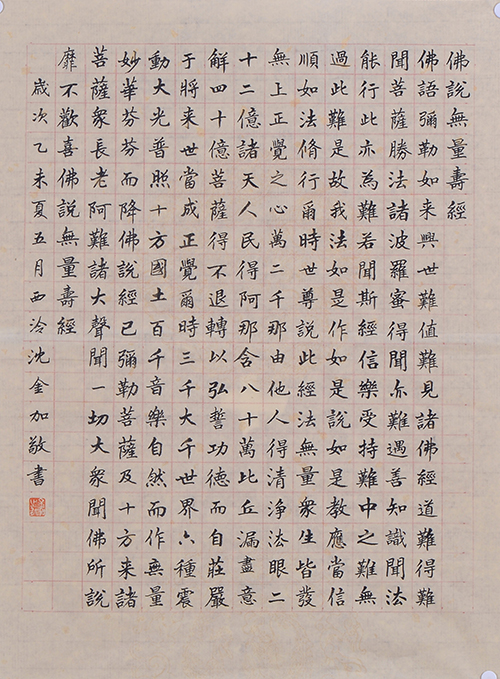 佛說無量壽經
佛語彌勒如来興世難值難見諸佛經道難得難
聞菩薩勝法諸波羅蜜得聞亦難遇善知識聞法
能行此亦為難若聞斯經信樂受持難中之難無
過此難是故我法如是作如是說如是教應當信
順如法脩行爾時世尊說此經法無量衆生皆發
無上正覺之心萬二千那由他人得清淨法眼二
十二億諸天人民得阿那含八十萬比丘漏盡意
解四十億菩薩得不退轉以弘誓功德而自莊嚴
于將来世當成正覺爾時三千大千世界六種震
動大光普照十方國土百千音樂自然而作無量
妙華芬芬而降佛說經已彌勒菩薩及十方来諸
菩薩衆長老阿難諸大聲聞一切大衆聞佛所說
靡不歡喜佛說無量壽經
歲次乙未夏五月西泠沈金加敬書